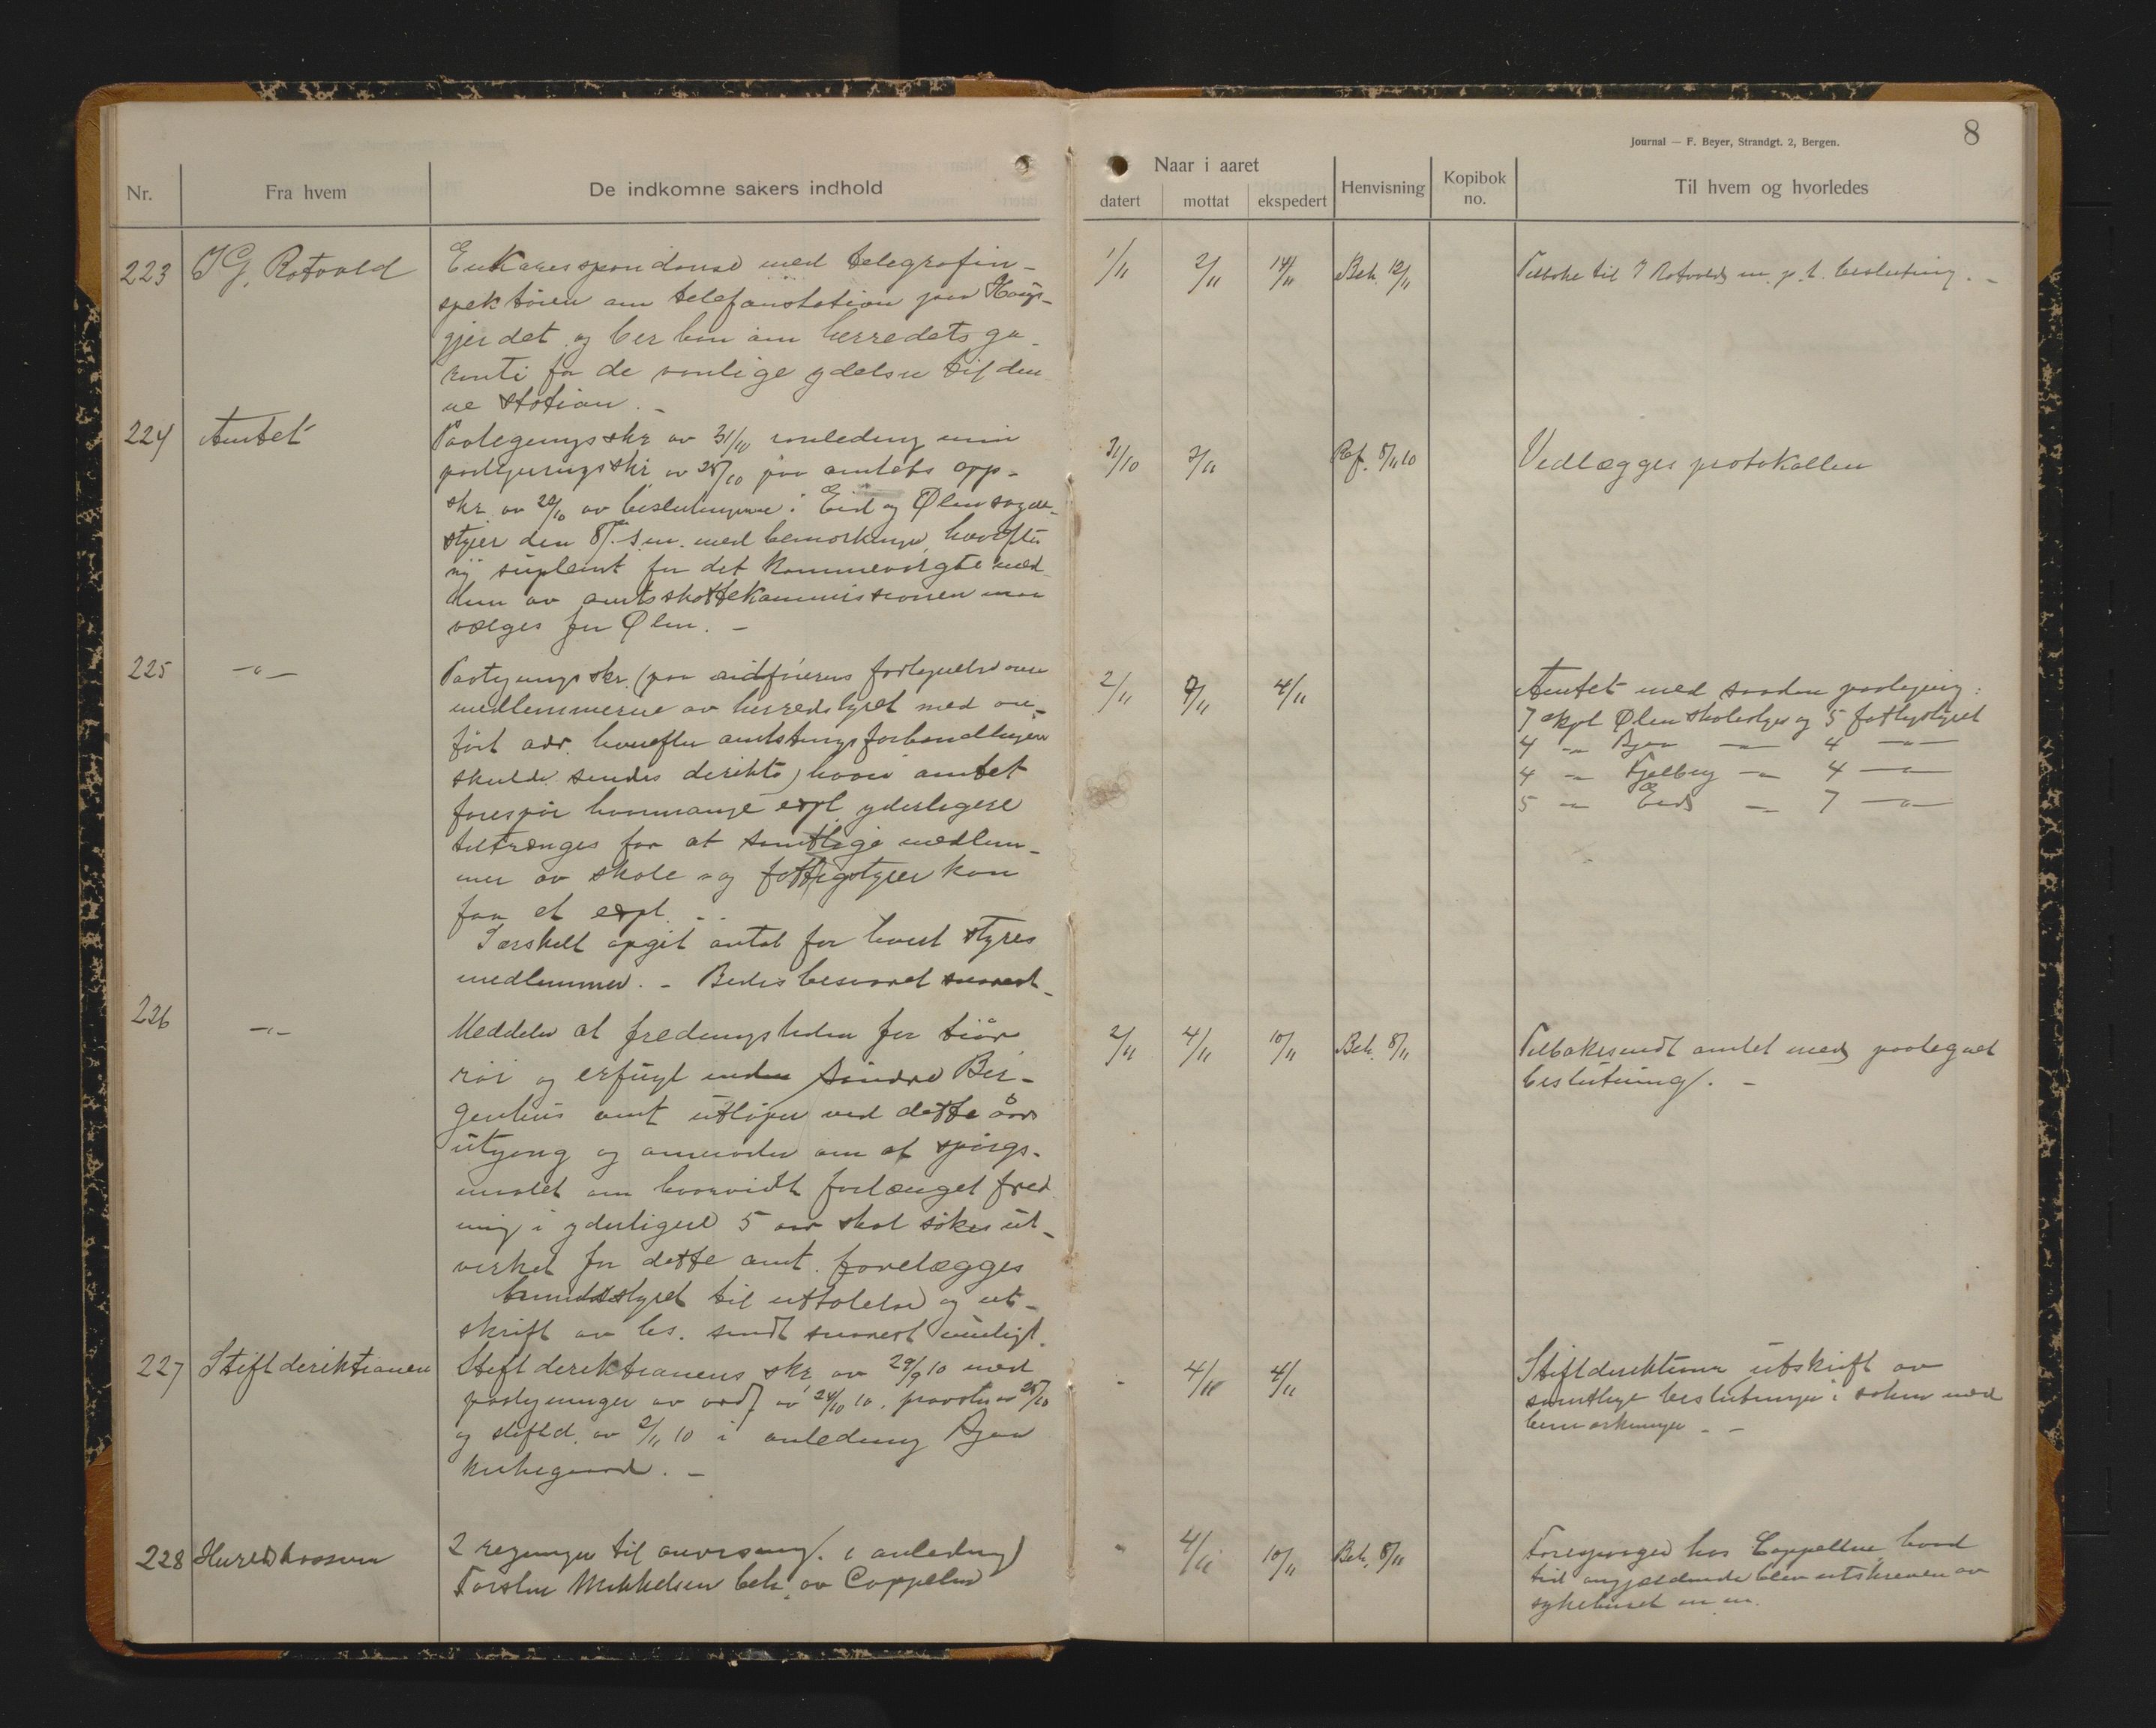 Journal — F. Beyer, Strandgt. 2, Bergen.
8
Nr.
Fra hvem
De indkomne sakers indhold
Naar i aaret
datert
mottat
ekspedert
Henvisning
Kopibok no.
Til hvem og hvorledes
223 I G. Rotvold
En Korrespondanse med telegrafin-
spektören om telefonstation paa Haugs-
gjerdet og ber han om herredets ga-
ranti for de vanlige ydelser til den
ne station. -
1/11 2/11 14/11 Beh. 12/11
Tilbake til I Rotvold m. p. t. beslutning. -
224 Amtet
Paategningsskr. av 31/10 anledning min
paategningsskr. av 28/10 paa amtets opp-
skr. av 20/10 av beslutningerne i Eid og Ølen sogne-
styrer den 8/ s.m. med bemerkninger, hvorefter
ny suplent for det Kommevalgte med-
lem av amtsskattekommissionen maa
vælges for Ølen. -
31/10 3/11 Ref. 8/11 10
Vedlægges protokollen
225 -"-
Paategningsskr. (paa ordförerens fortegnelse over
medlemmerne av herredstyret med an-
fört adr. hvorefter amtstingsforhandlingene
skulde sendes direkte) hvori amtet
forespör hvormange expl. yderligere
tiltrænges for at samtlige medlem-
mer av skole og fattigstyrer kan
faa et expl. -
Særskilt opgit antal for hvert styres
medlemmer. - Bedes besvaret snarest -
2/11 7/11 4/11
Amtet med saadan paategning:
7 expl Ølen skolestyre og 5 fattigstyret
4 -"- Bjoa -"- 4 -"-
4 -"- Fjelberg -"- 4 -"-
5 -"- Eid -"- 7 -"-
226 -"-
Meddeler at fredningstiden for tiur,
röi og orfugl inden Söndre Ber-
genhus amt utlöper ved dette års
utgang og anmoder om at spörgs-
maalet om hvorvidt forlænget fred-
ning i yderligere 5 aar skal sökes ut-
virket for dette amt. forelægges
herredsstyret til uttalelse og ut-
skrift av bes. sendt snarest muligt.
2/11 4/11 10/11 Beh. 8/11
Tilbakesendt amtet med paategnet
beslutning. -
227 Stiftdirektionen
Stiftdirektionens skr. av 29/9 10 med
paategninger av ordf av 24/10 10, provsten 28/10
og stiftd. av 2/11 10 i anledning Bjoa
kirkegaard. -
- 4/11 4/11
Stiftdirektionen utskrift av
samtlige beslutninger i saken med
bemerkninger - -
228 Herredskassereren
2 regninger til anvisning. i anledning
Torsten Mikkelsen beh. av Coppelen
" 4/11 10/11 Beh. 8/11
Forespörges hos Coppelen, hvad
tid angjældende blev utskreven av
sykehuset m. m.